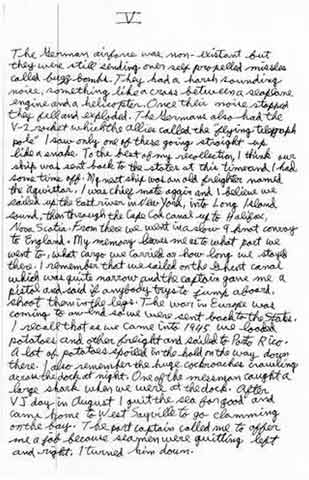 V
The German airforce was non-existant but
they were still sending over self propelled missles
called buzz-bombs. They had a harsh sounding
noise, something like a cross between a seaplane
engine and a helicopter. Once their noise stopped
they fell and exploded. The Germans also had the
V-2 rocket which the allies called the "flying telegraph
pole" I saw only one of these going straight up
like a snake. To the best of my recollection, I think our
ship was sent back to the states at this time and I had
some time off. My next ship was an old freighter named
the Aquistar. I was chief mate again and I believe we
sailed up the East river in New York, into Long Island
sound, then through the Cape Cod canal up to Halifax,
Nova Scotia. From there we went in a slow 9 knot convoy
to England. My memory leaves me as to what port we
went to, what cargo we carried or how long we stayed
there. I remember that we sailed on the Ghent canal
which was quite narrow and the captain gave me a
pistol and said if anybody trys to jump aboard,
shoot them in the legs. The war in Europe was
coming to an end so we were sent back to the States.
I recall that as we came into 1945 we loaded
potatoes and other freight and sailed to Porto Rico.
A lot of potatoes spoiled in the hold on the way down
there. I also remember the huge cockroaches crawling
across the dock at night. One of the messmen caught a
large shark when we were at the dock. After
VJ day in August I quit the sea for good and
came home to West Sayville to go clamming
on the bay. The port captain called me to offer
me a job because seamen were quitting left
and right. I turned him down.